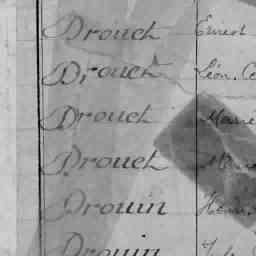 Drouet Ernest
Drouet Léon, Ce
Drouet Marie
Drouet
Drouin Henri
Drouin Jule